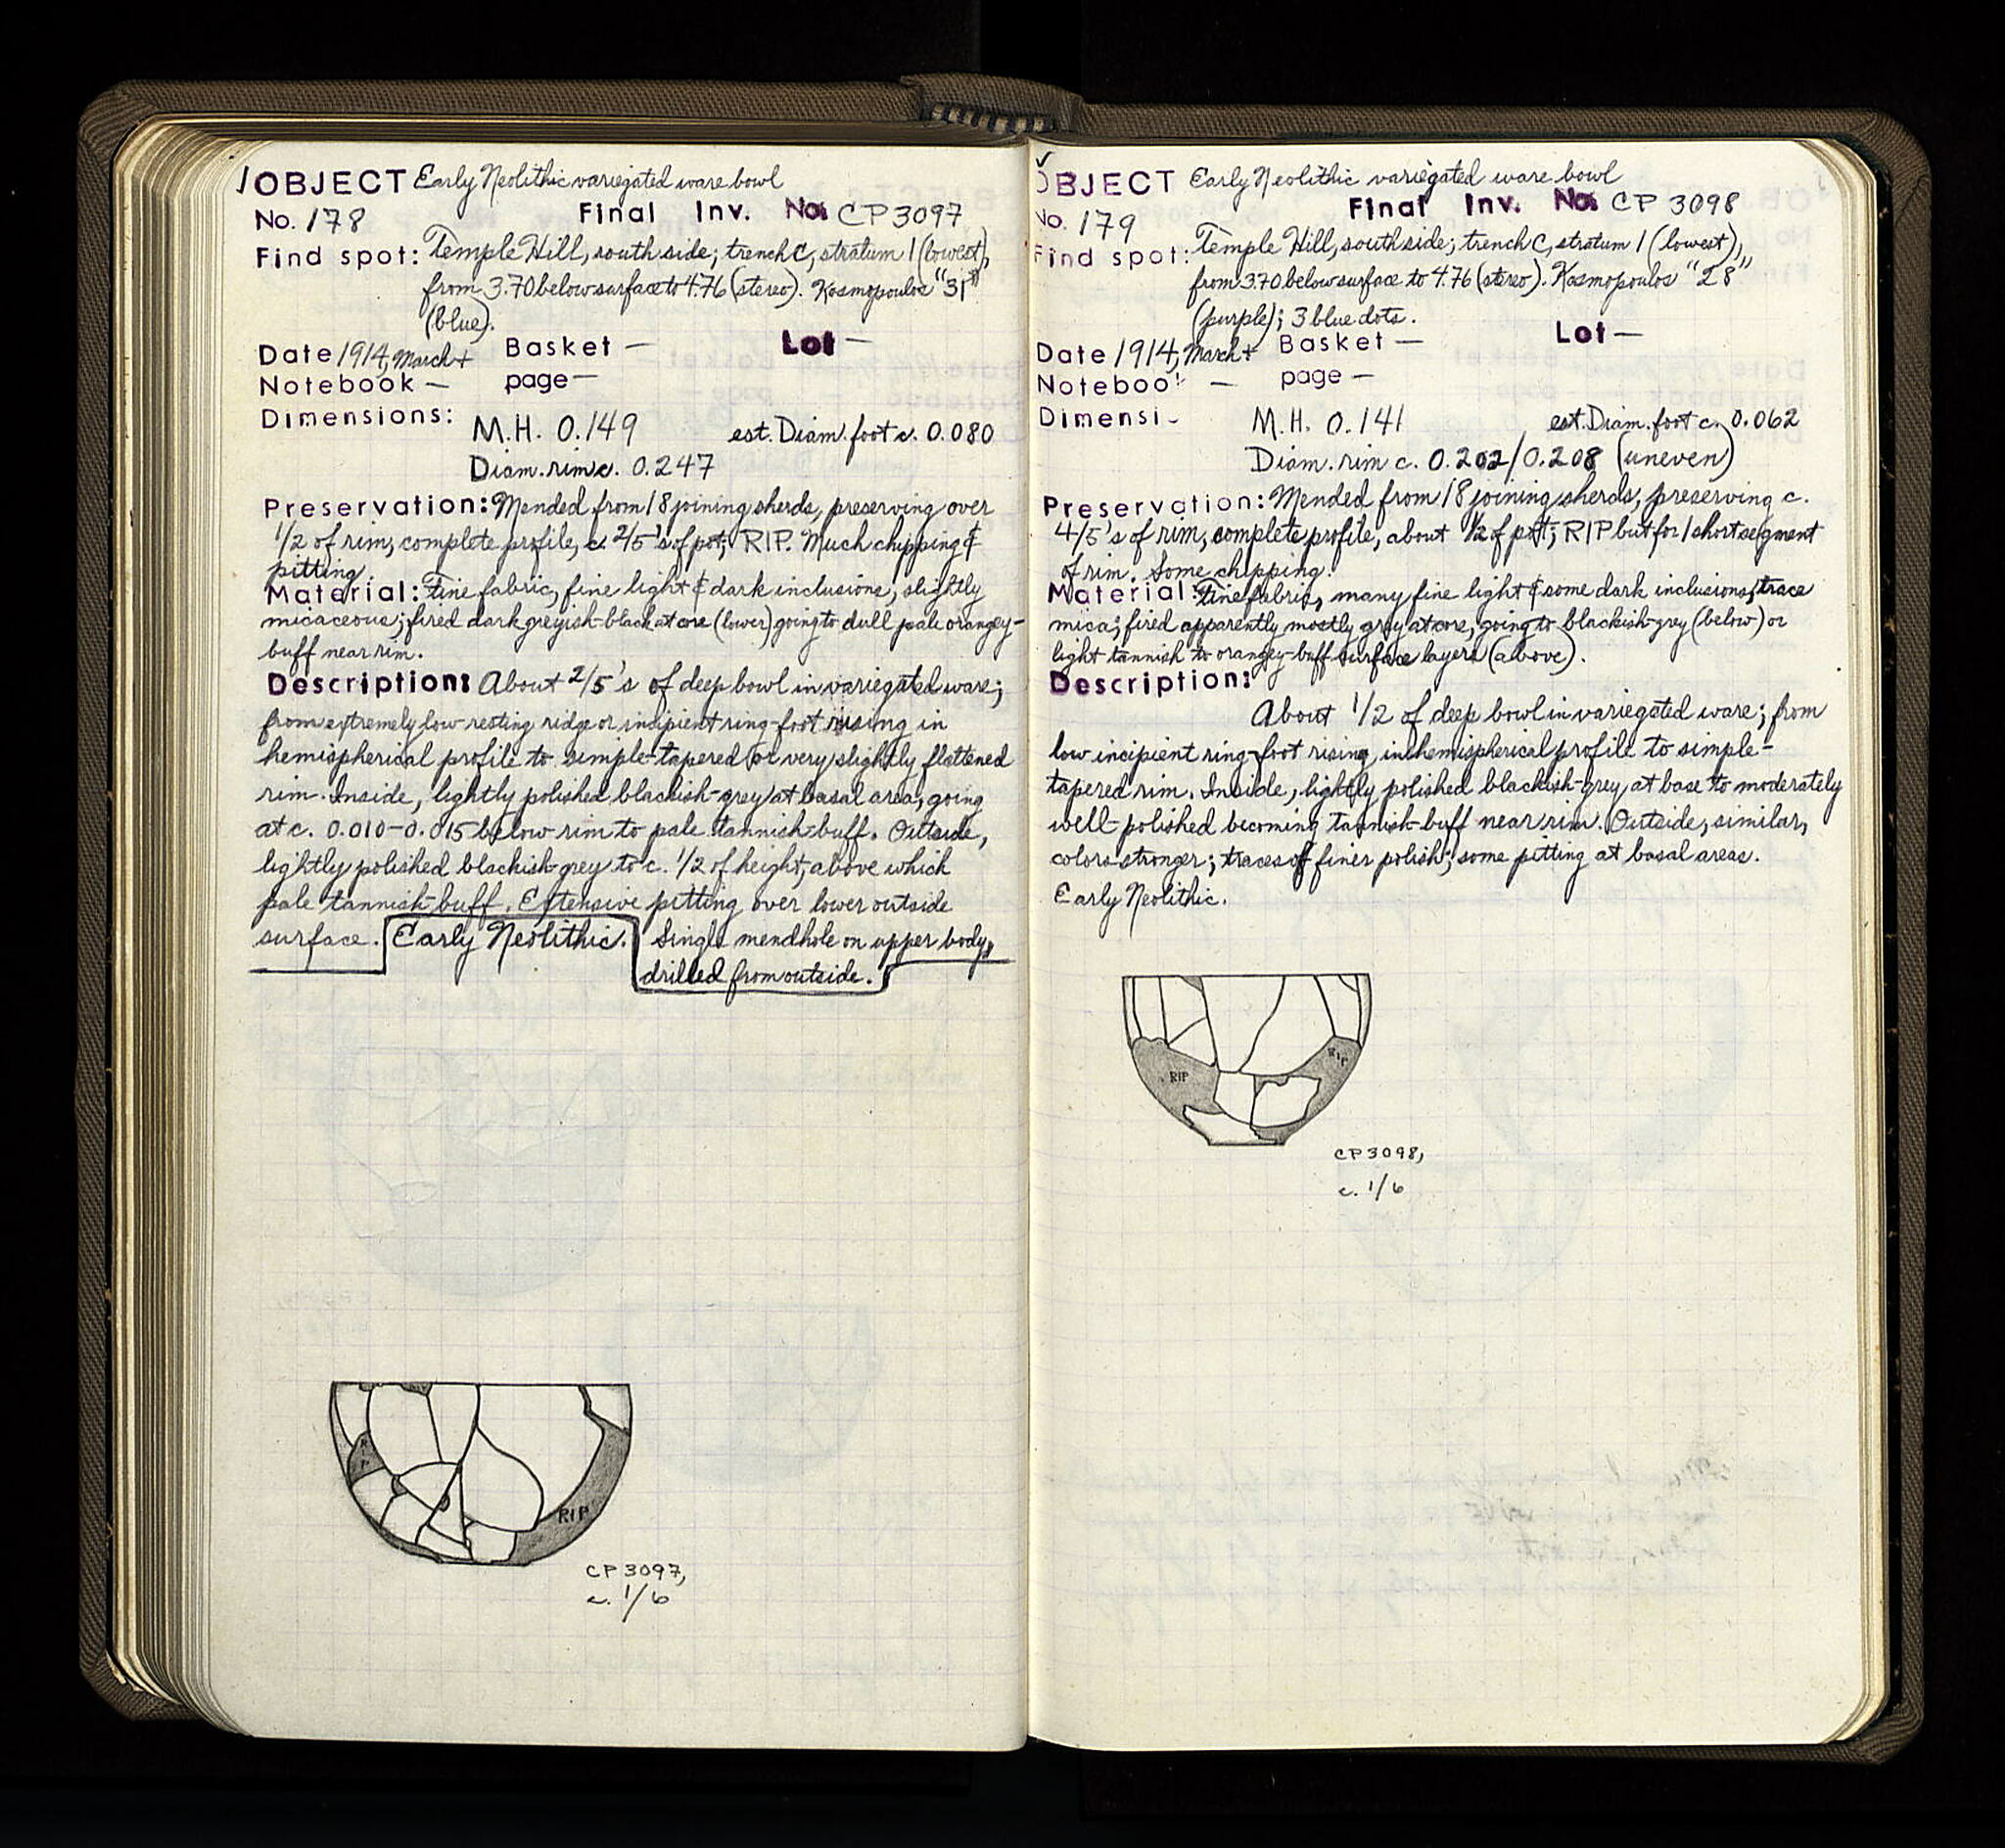 OBJECT Early Neolithic variegated ware bowl
No. 178 Final Inv. No. CP 3097
Find spot: Temple Hill, south side; trench C, stratum 1 (lowest),
from 3.70 below surface to 4.76 (stereo). Kosmopoulos "31"
(blue).
Date 1914, March+ Basket — Lot —
Notebook — page —
Dimensions: M.H. 0.149 est. Diam. foot c. 0.080
Diam. rim c. 0.247
Preservation: Mended from 18 joining sherds, preserving over
1/2 of rim, complete profile, c. 2/5's of pot; RIP. Much chipping &
pitting.
Material: Fine fabric, fine light & dark inclusions, slightly
micaceous; fired dark greyish-black at core (lower) going to dull pale orangey-
buff near rim.
Description: About 2/5's of deep bowl in variegated ware;
from extremely low resting ridge or incipient ring-foot rising in
hemispherical profile to simple-tapered or very slightly flattened
rim. Inside, lightly polished blackish-grey at basal area, going
at c. 0.010-0.015 below rim to pale tannish-buff. Outside,
lightly polished blackish-grey to c. 1/2 of height, above which
pale tannish-buff. Extensive pitting over lower outside
surface. Early Neolithic. Single mendhole on upper body,
drilled from outside.
R
P
RIP
CP 3097,
c. 1/6
✓
OBJECT Early Neolithic variegated ware bowl
No. 179 Final Inv. No. CP 3098
Find spot: Temple Hill, south side; trench C, stratum 1 (lowest),
from 3.70 below surface to 4.76 (stereo). Kosmopoulos "28"
(purple); 3 blue dots.
Date 1914, March+ Basket — Lot —
Notebook — page —
Dimensi- M.H. 0.141 est. Diam. foot c. 0.062
Diam. rim c. 0.202/0.208 (uneven)
Preservation: Mended from 18 joining sherds, preserving c.
4/5's of rim, complete profile, about 1/2 of pot; RIP but for 1 short segment
of rim. Some chipping.
Material: Fine fabric, many fine light & some dark inclusions, trace
mica; fired apparently mostly grey at core, going to blackish-grey (below) or
light tannish to orangey-buff surface layers (above).
Description:
About 1/2 of deep bowl in variegated ware; from
low incipient ring-foot rising in hemispherical profile to simple-
tapered rim. Inside, lightly polished blackish-grey at base to moderately
well-polished becoming tannish-buff near rim. Outside, similar,
colors stronger; traces of finer polish; some pitting at basal areas.
Early Neolithic.
RIP
RIP
CP 3098,
c. 1/6